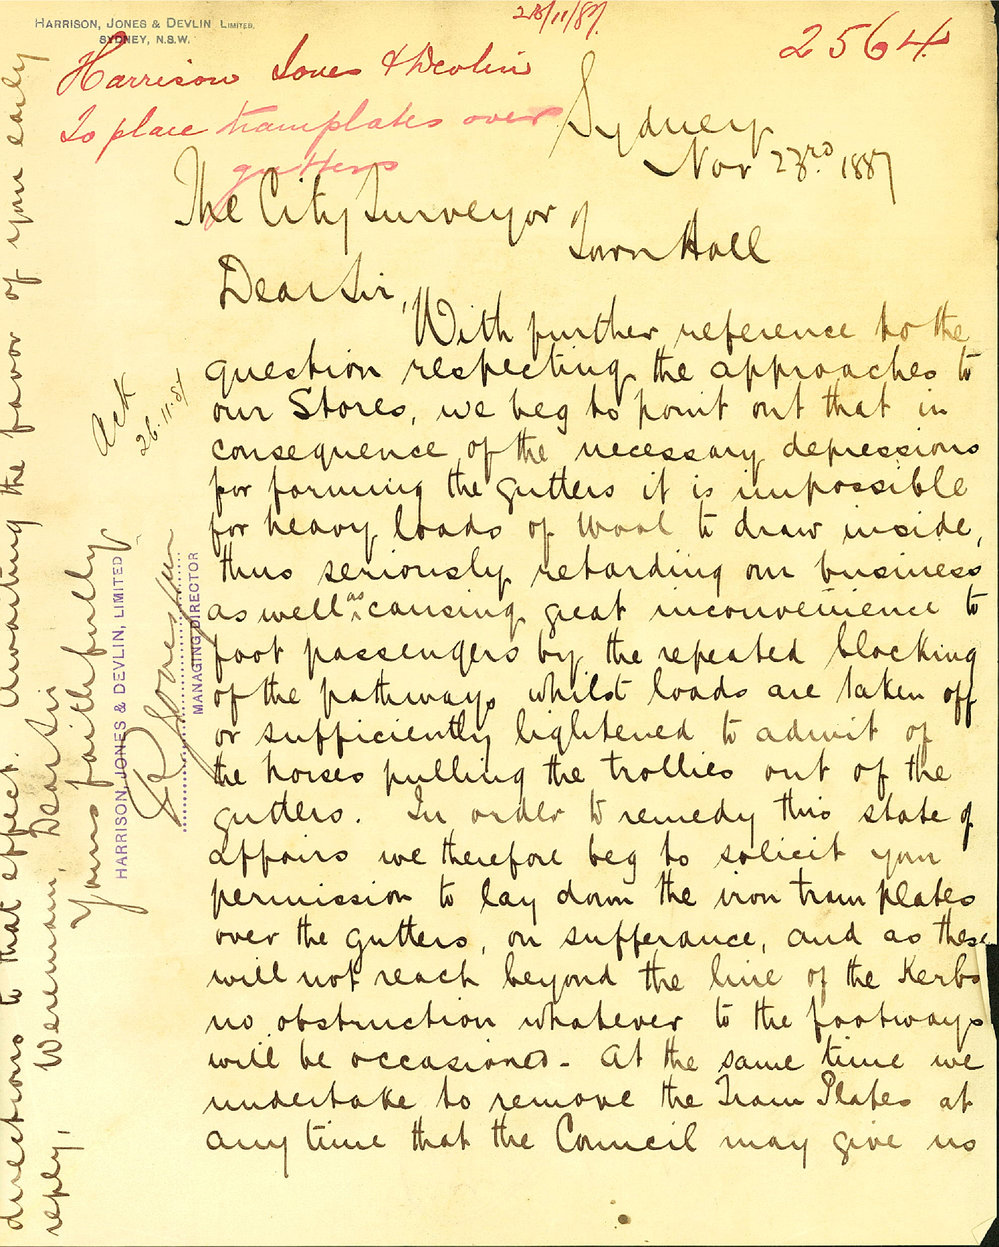 HARRISON, JONES & DEVLIN LIMITED,
SYDNEY, N.S.W.
28/11/87.
2564
Harrison Jones & Devlin
To place tramplates over
gutters
Sydney
Nov 23rd. 1887
The City Surveyor
Town Hall
Dear Sir,
With further reference to the
question respecting the approaches to
our Stores, we beg to point out that in
consequence of the necessary depressions
for forming the gutters it is impossible
for heavy loads of wool to draw inside,
thus seriously retarding our business
as well as causing great inconvenience to
foot passengers by the repeated blocking
of the pathways whilst loads are taken off
or sufficiently lightened to admit of
the horses pulling the trollies out of the
gutters. In order to remedy this state of
affairs we therefore beg to solicit your
permission to lay down the iron tram plates
over the gutters, on sufferance, and as these
will not reach beyond the line of the Kerbs
no obstruction whatever to the footways
will be occasioned - At the same time we
undertake to remove the Tram Plates at
any time that the Council may give us
directions to that effect. Awaiting the favor of your early
reply,
We remain, Dear Sir
Yours faithfully
HARRISON, JONES & DEVLIN, LIMITED,
MANAGING DIRECTOR
Ack
26.11.87